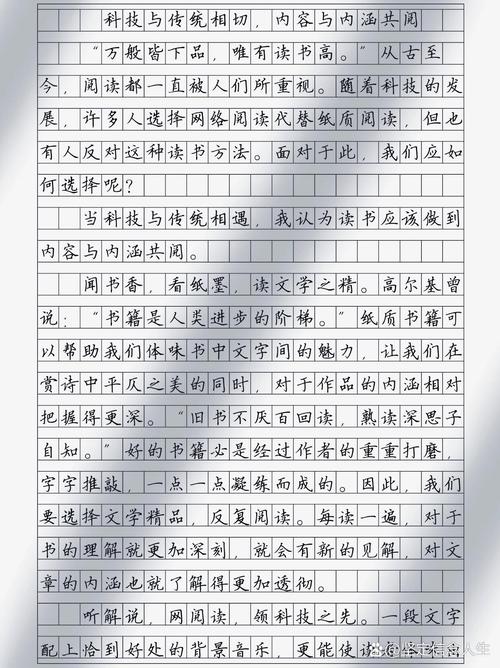 科技与传统相切，内容与内涵共阅
“万般皆下品，唯有读书高。”从古至
今，阅读都一直被人们所重视。随着科技的发
展，许多人选择网络阅读代替纸质阅读，但也
有人反对这种读书方法。面对于此，我们应如
何选择呢？
当科技与传统相遇，我认为读书应该做到
内容与内涵共阅。
闻书香，看纸墨，读文学之精。高尔基曾
说：“书籍是人类进步的阶梯。”纸质书籍可
以帮助我们体味书中文字间的魅力，让我们在
赏诗中平仄之美的同时，对于作品的内涵相对
把握得更深。“旧书不厌百回读，熟读深思子
自知。”好的书籍必是经过作者的重重打磨，
字字推敲，一点一点凝练而成的。因此，我们
要选择文学精品，反复阅读。每读一遍，对于
书的理解就更加深刻，就会有新的见解，对文
章的内涵也就了解得更加透彻。
听解说，网阅读，领科技之先。一段文字
配上恰到好处的背景音乐，更能使读
人生